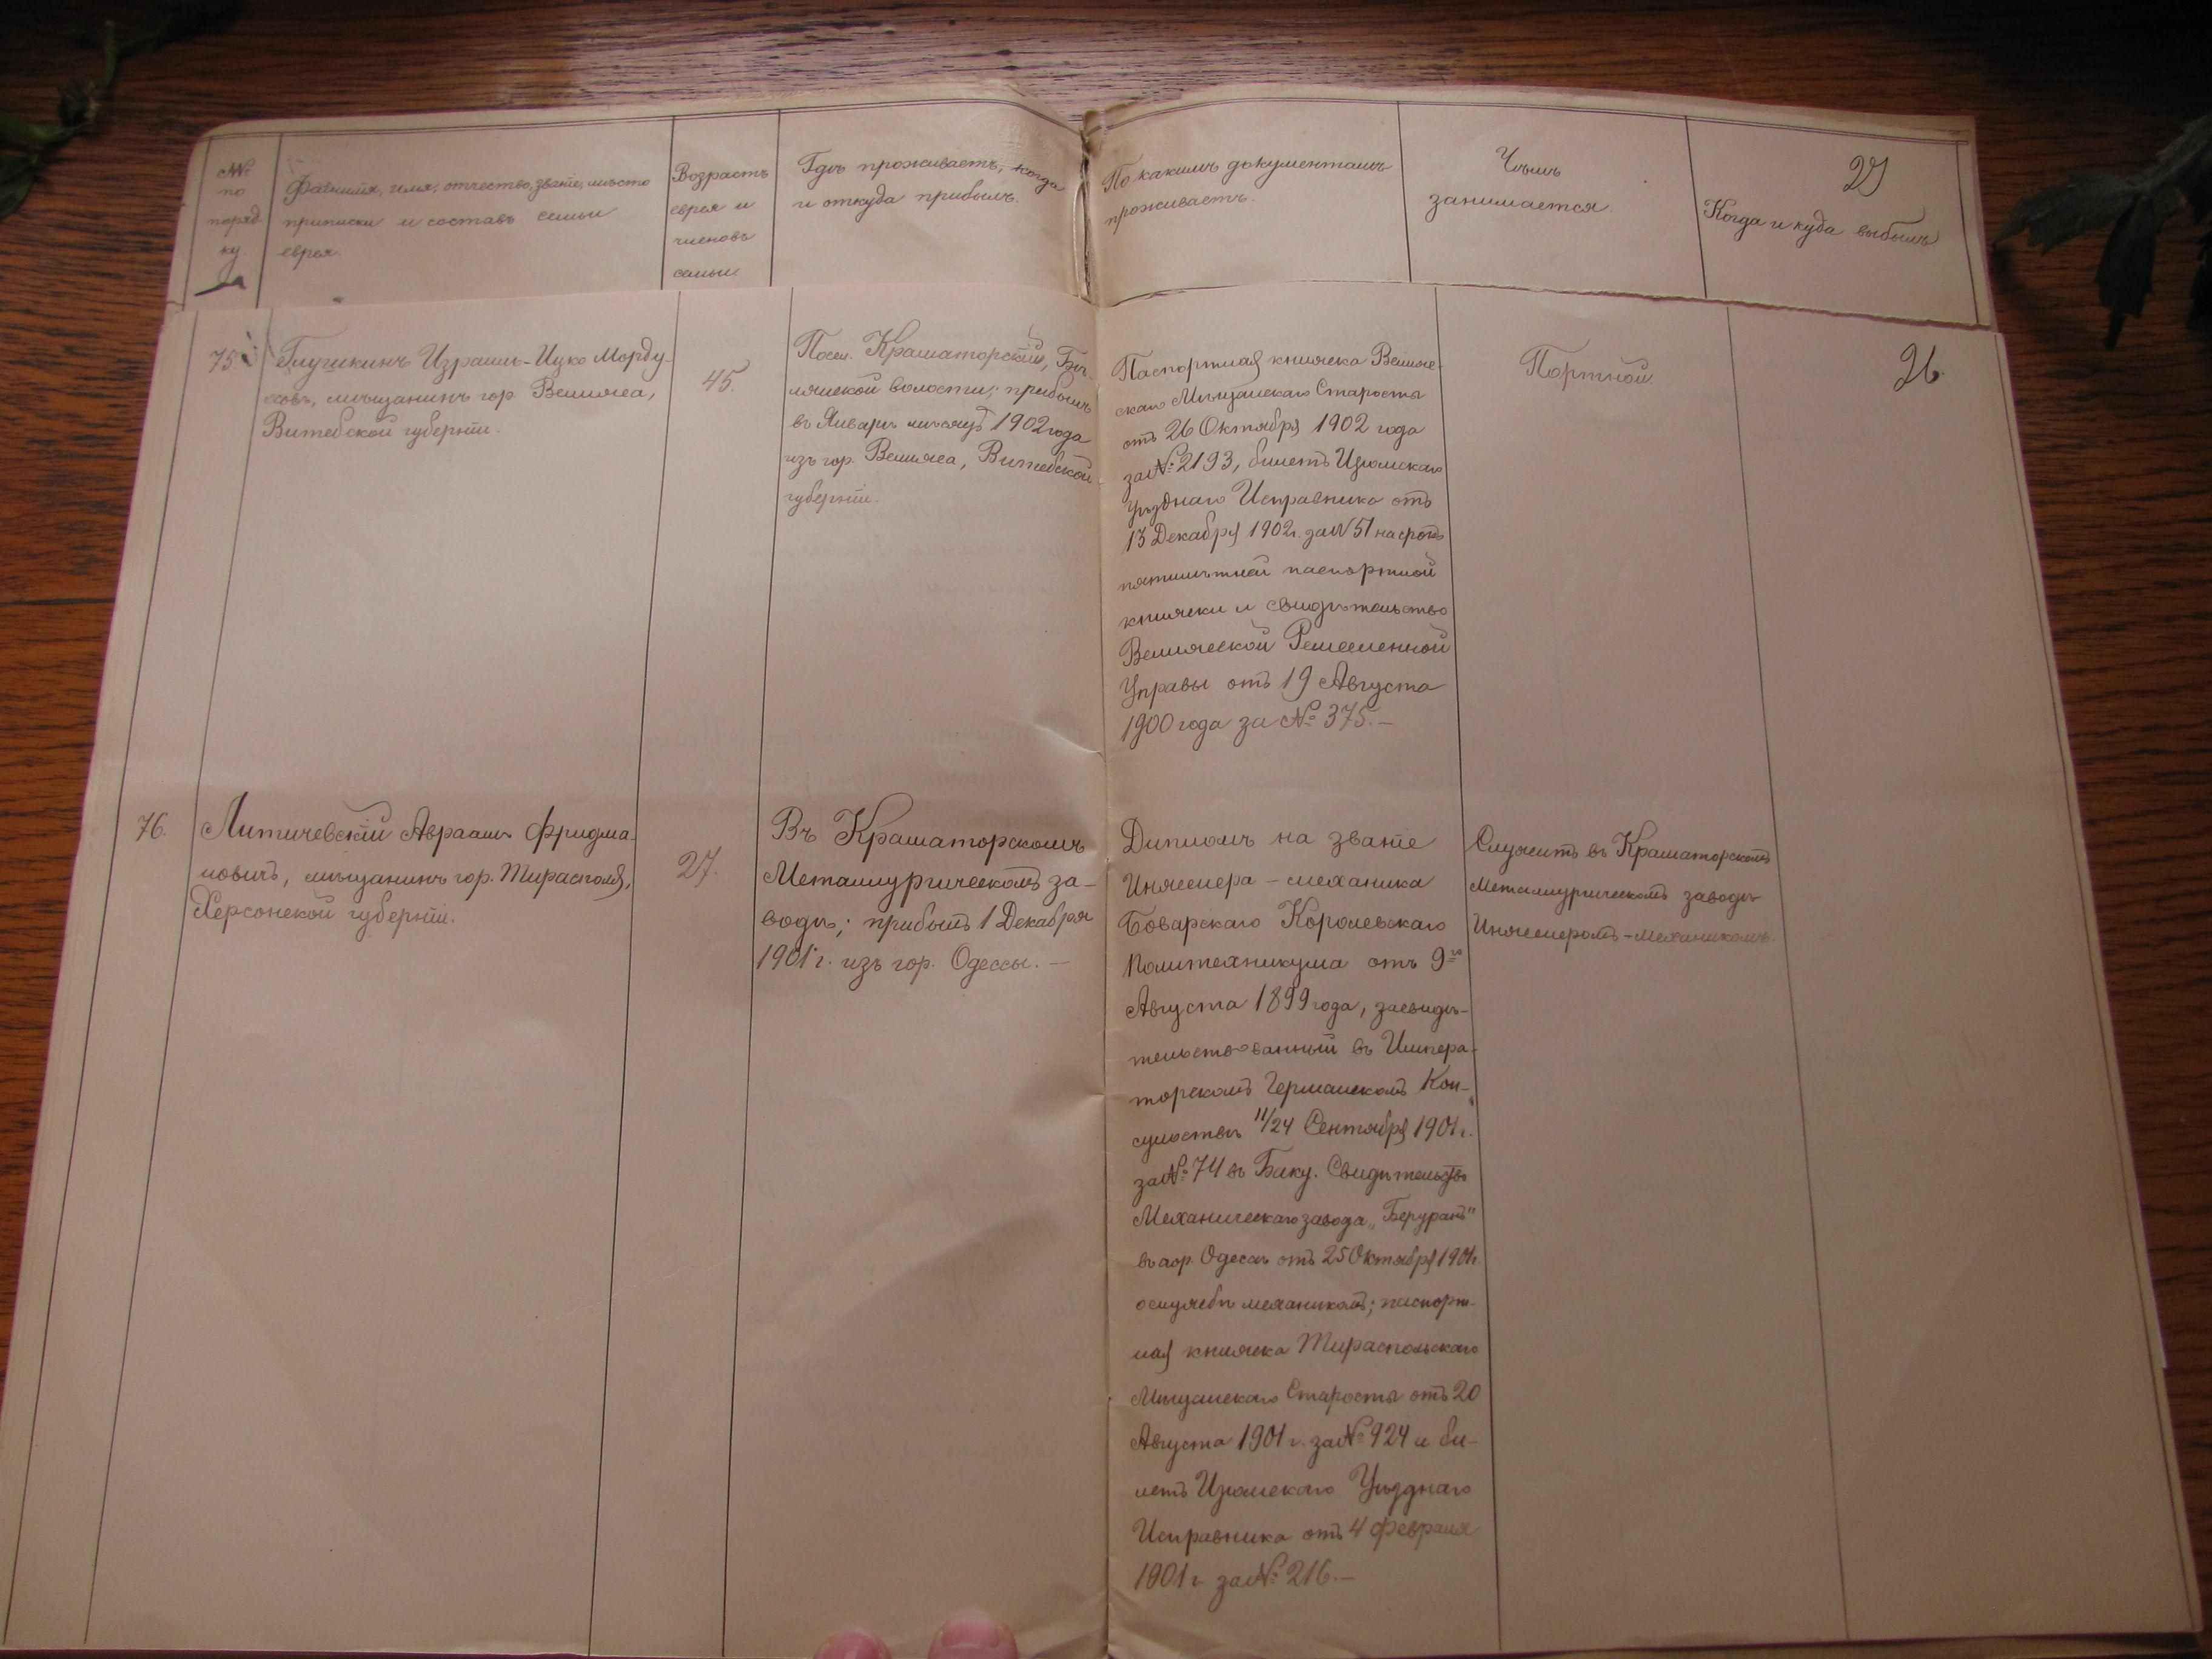 №№
по
поряд
ку
Фамилія, имя, отчество, званіе, мѣсто
приписки и составъ семьи
еврея.
Возрастъ
еврея и
членовъ
семьи.
Гдѣ проживаетъ, когда
и откуда прибылъ.
По какимъ документамъ
проживаетъ.
Чѣмъ
занимается.
27
Когда и куда выбылъ
75.
Глушкинъ Израиль-Ицко Морду-
ховъ, мѣщанинъ гор. Велижа,
Витебской губерніи.
45.
Посел. Краматорскій, Бѣ-
лянской волости; прибылъ
въ Январѣ мѣсяцѣ 1902 года
изъ гор. Велижа, Витебской
губерніи.
Паспортная книжка Велиж-
скаго Мѣщанскаго Старосты
отъ 26 Октября 1902 года
за № 2193, билетъ Изюмскаго
Уѣзднаго Исправника отъ
13 Декабря 1902 г. за № 51 на срокъ
пятилѣтней паспортной
книжки и свидѣтельство
Велижской Ремесленной
Управы отъ 19 Августа
1900 года за № 375.—
Портной
26.
76.
Литичевскій Авраамъ Фридма-
новичъ, мѣщанинъ гор. Тирасполя,
Херсонской губерніи.
27.
Въ Краматорскомъ
Металлургическомъ за-
водѣ; прибылъ 1 Декабря
1901 г. изъ гор. Одессы.—
Дипломъ на званіе
Инженера-механика
Баварскаго Королевскаго
Политехникума отъ 9го
Августа 1899 года, засвидѣ-
тельствованный въ Импера-
торскомъ Германскомъ Кон-
сульствѣ 11/24 Сентября 1901 г.
за № 74 въ Баку. Свидѣтельство
Механическаго завода „
въ гор. Одессѣ отъ 25 Октября 1901 г.
о службѣ механикомъ; паспорт-
ная книжка Тираспольскаго
Мѣщанскаго Старосты отъ 20
Августа 1901 г. за № 924 и би-
летъ Изюмскаго Уѣзднаго
Исправника отъ 4 Февраля
1901 г. за № 216.—
Служитъ въ Краматорскомъ
Металлургическомъ заводѣ
Инженеромъ-механикомъ.